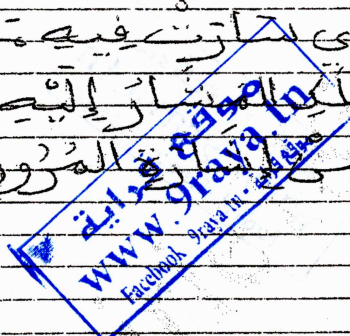 سَارَتْ فِيهِ
المشَارُ إِلَيْهِ
إشارة المُرُور
موقع قراية
www.9raya.tn
Facebook 9raya tn - موقع قراية